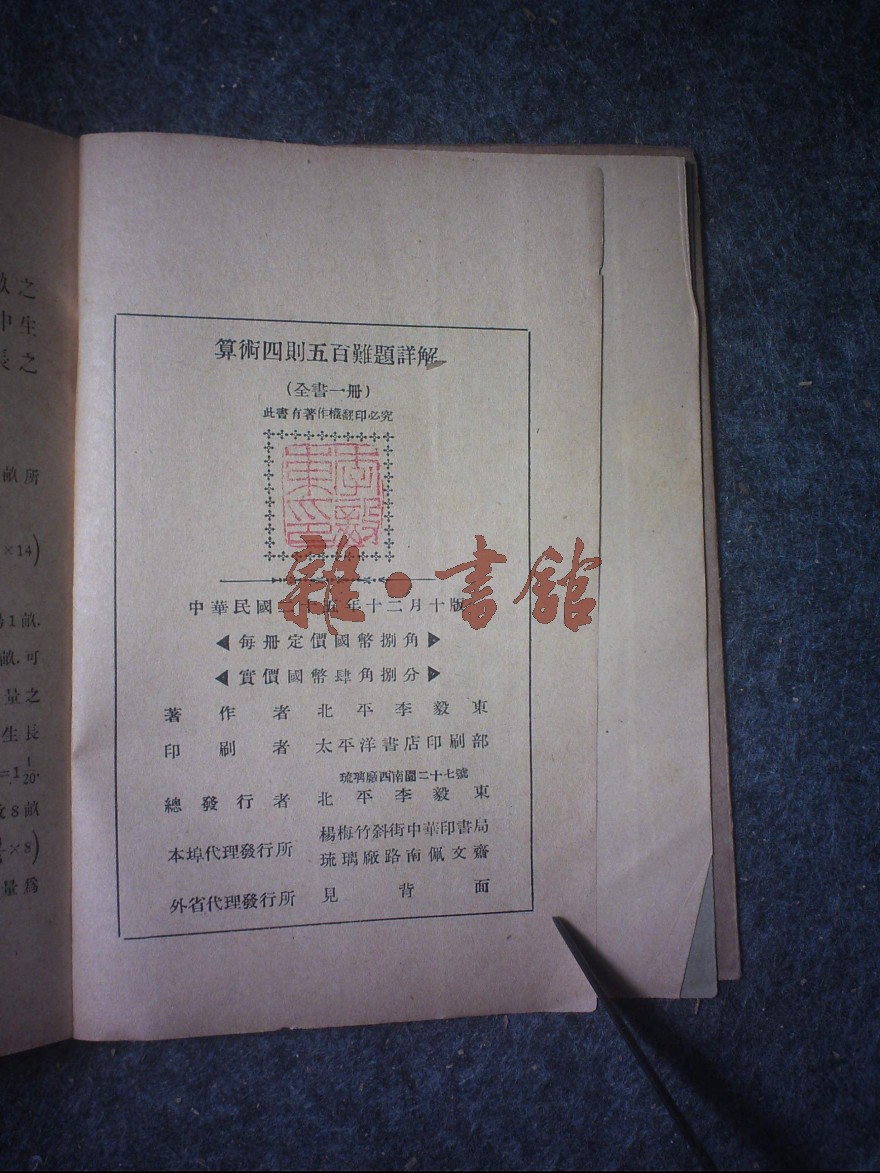 算術四則五百難題詳解
(全書一冊)
此書有著作權翻印必究
李毅
東印
雜·書館
中華民國二十五年十二月十版
◀每冊定價國幣捌角▶
◀實價國幣肆角捌分▶
著作者 北平李毅東
印刷者 太平洋書店印刷部
琉璃廠西南園二十七號
總發行者 北平李毅東
本埠代理發行所 楊梅竹斜街中華印書局
琉璃廠路南佩文齋
外省代理發行所 見背面
之
中生
長之
畝所
×14)
1畝.
畝.可
量之
生長
=1 1/20.
8畝
×8)
量爲